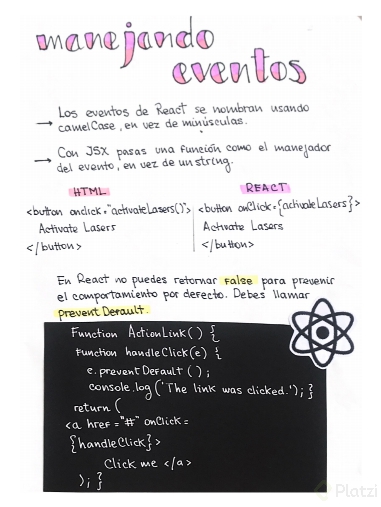 manejando
eventos
→ Los eventos de React se nombran usando
camelCase, en vez de minúsculas.
→ Con JSX pasas una función como el manejador
del evento, en vez de un string.
HTML
<button onclick="activateLasers()">
Activate Lasers
</button>
REACT
<button onClick={activateLasers}>
Activate Lasers
</button>
En React no puedes retornar false para prevenir
el comportamiento por defecto. Debes llamar
prevent Default.
Function ActionLink() {
Function handleClick(e) {
e.preventDefault();
console.log('The link was clicked.'); }
return (
<a href="#" onClick=
{handleClick}>
Click me </a>
); }
Platzi